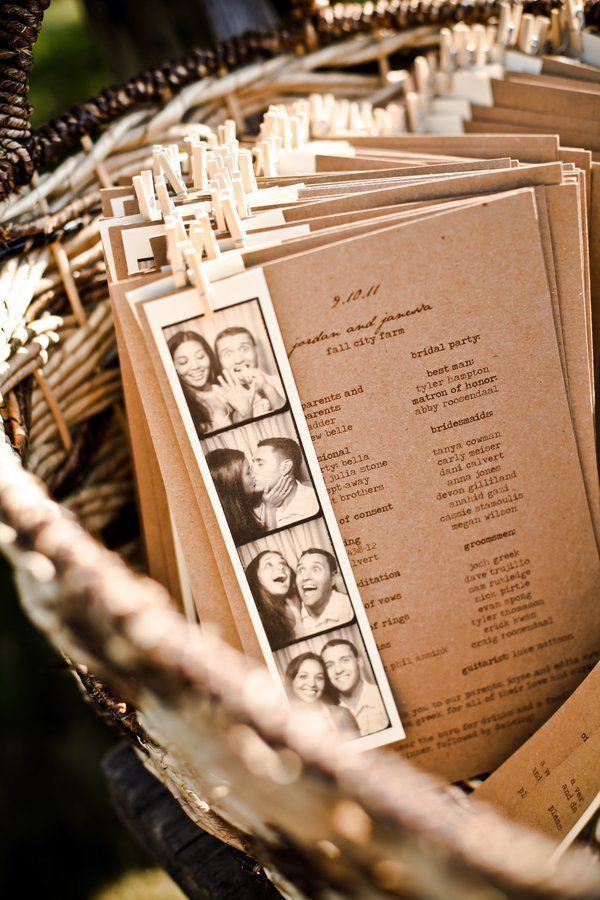 9.10.11
jordan and janessa
fall city farm
parents and
parents
adder
ew belle
sional
rty: bella
julia stone
pt away
t brothers
of consent
ing
438-12
lvert
ditation
of vows
of rings
phil assink
bridal party:
best man:
tyler hampton
matron of honor:
abby roosendaal
bridesmaids:
tanya cowman
carly meiser
dani calvert
anna jones
devon gilliland
anahid gazi
cassie stamoulis
megan wilson
groomsmen:
josh greek
dave trujillo
sam rutledge
nick pirtle
evan spong
tyler thomason
erick kwan
craig roosendaal
guitarist: luke mattson
you to our parents, joyce and eddie
greek, for all of their love and
the barn for drinks and a
dinner followed by dancing